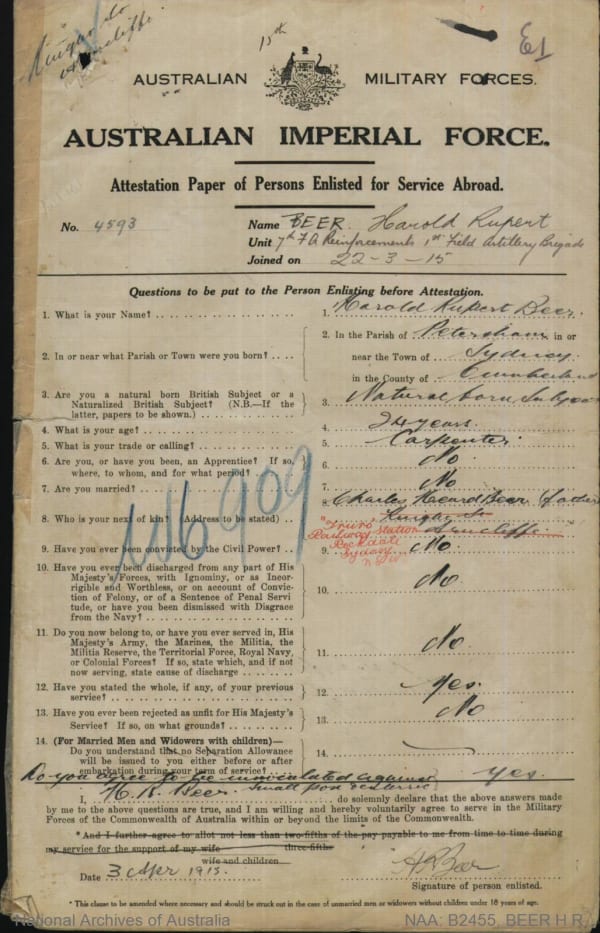 15th
AUSTRALIAN MILITARY FORCES.
AUSTRALIAN IMPERIAL FORCE.
Attestation Paper of Persons Enlisted for Service Abroad.
No. 4593
Name BEER. Harold Rupert
Unit 7th F A Reinforcements 1st Field Artillery Brigade
Joined on 22-3-15
Questions to be put to the Person Enlisting before Attestation.
1. What is your Name? 1. Harold Rupert Beer.
2. In or near what Parish or Town were you born? 2. In the Parish of Petersham in or
near the Town of Sydney.
in the County of Cumberland
3. Are you a natural born British Subject or a
Naturalized British Subject? (N.B.—If the
latter, papers to be shown.) 3. Natural born Subject
4. What is your age? 4. 24 years.
5. What is your trade or calling? 5. Carpenter.
6. Are you, or have you been, an Apprentice? If so,
where, to whom, and for what period? 6. No
7. Are you married? 7. No
8. Who is your next of kin? (Address to be stated) 8. Charles Heard Beer (father)
"Truro"
Railway Station
Rockdale
Sydney
9. Have you ever been convicted by the Civil Power? 9. No.
10. Have you ever been discharged from any part of His
Majesty's Forces, with Ignominy, or as Incor-
rigible and Worthless, or on account of Convic-
tion of Felony, or of a Sentence of Penal Servi-
tude, or have you been Dismissed with Disgrace
from the Navy? 10. No.
11. Do you now belong to, or have you ever served in, His
Majesty's Army, the Marines, the Militia, the
Militia Reserve, the Territorial Force, Royal Navy,
or Colonial Forces? If so, state which, and if not
now serving, state cause of discharge 11. No.
12. Have you stated the whole, if any, of your previous
service? 12. Yes.
13. Have you ever been rejected as unfit for His Majesty's
Service? If so, on what grounds? 13. No
14. (For Married Men and Widowers with children)—
Do you understand that no Separation Allowance
will be issued to you either before or after
embarkation during your term of service? 14.
Do you agree to be innoculated against Yes.
small pox
I, H. R. Beer. do solemnly declare that the above answers made
by me to the above questions are true, and I am willing and hereby voluntarily agree to serve in the Military
Forces of the Commonwealth of Australia within or beyond the limits of the Commonwealth.
*And I further agree to allot not less than two-fifths of the pay payable to me from time to time during
three-fifths
my service for the support of my wife
wife and children
Date 3 Apr 1915. H R Beer
Signature of person enlisted.
* This clause to be amended where necessary and should be struck out in the case of unmarried men or widowers without children under 18 years of age.
National Archives of Australia NAA: B2455, BEER H R